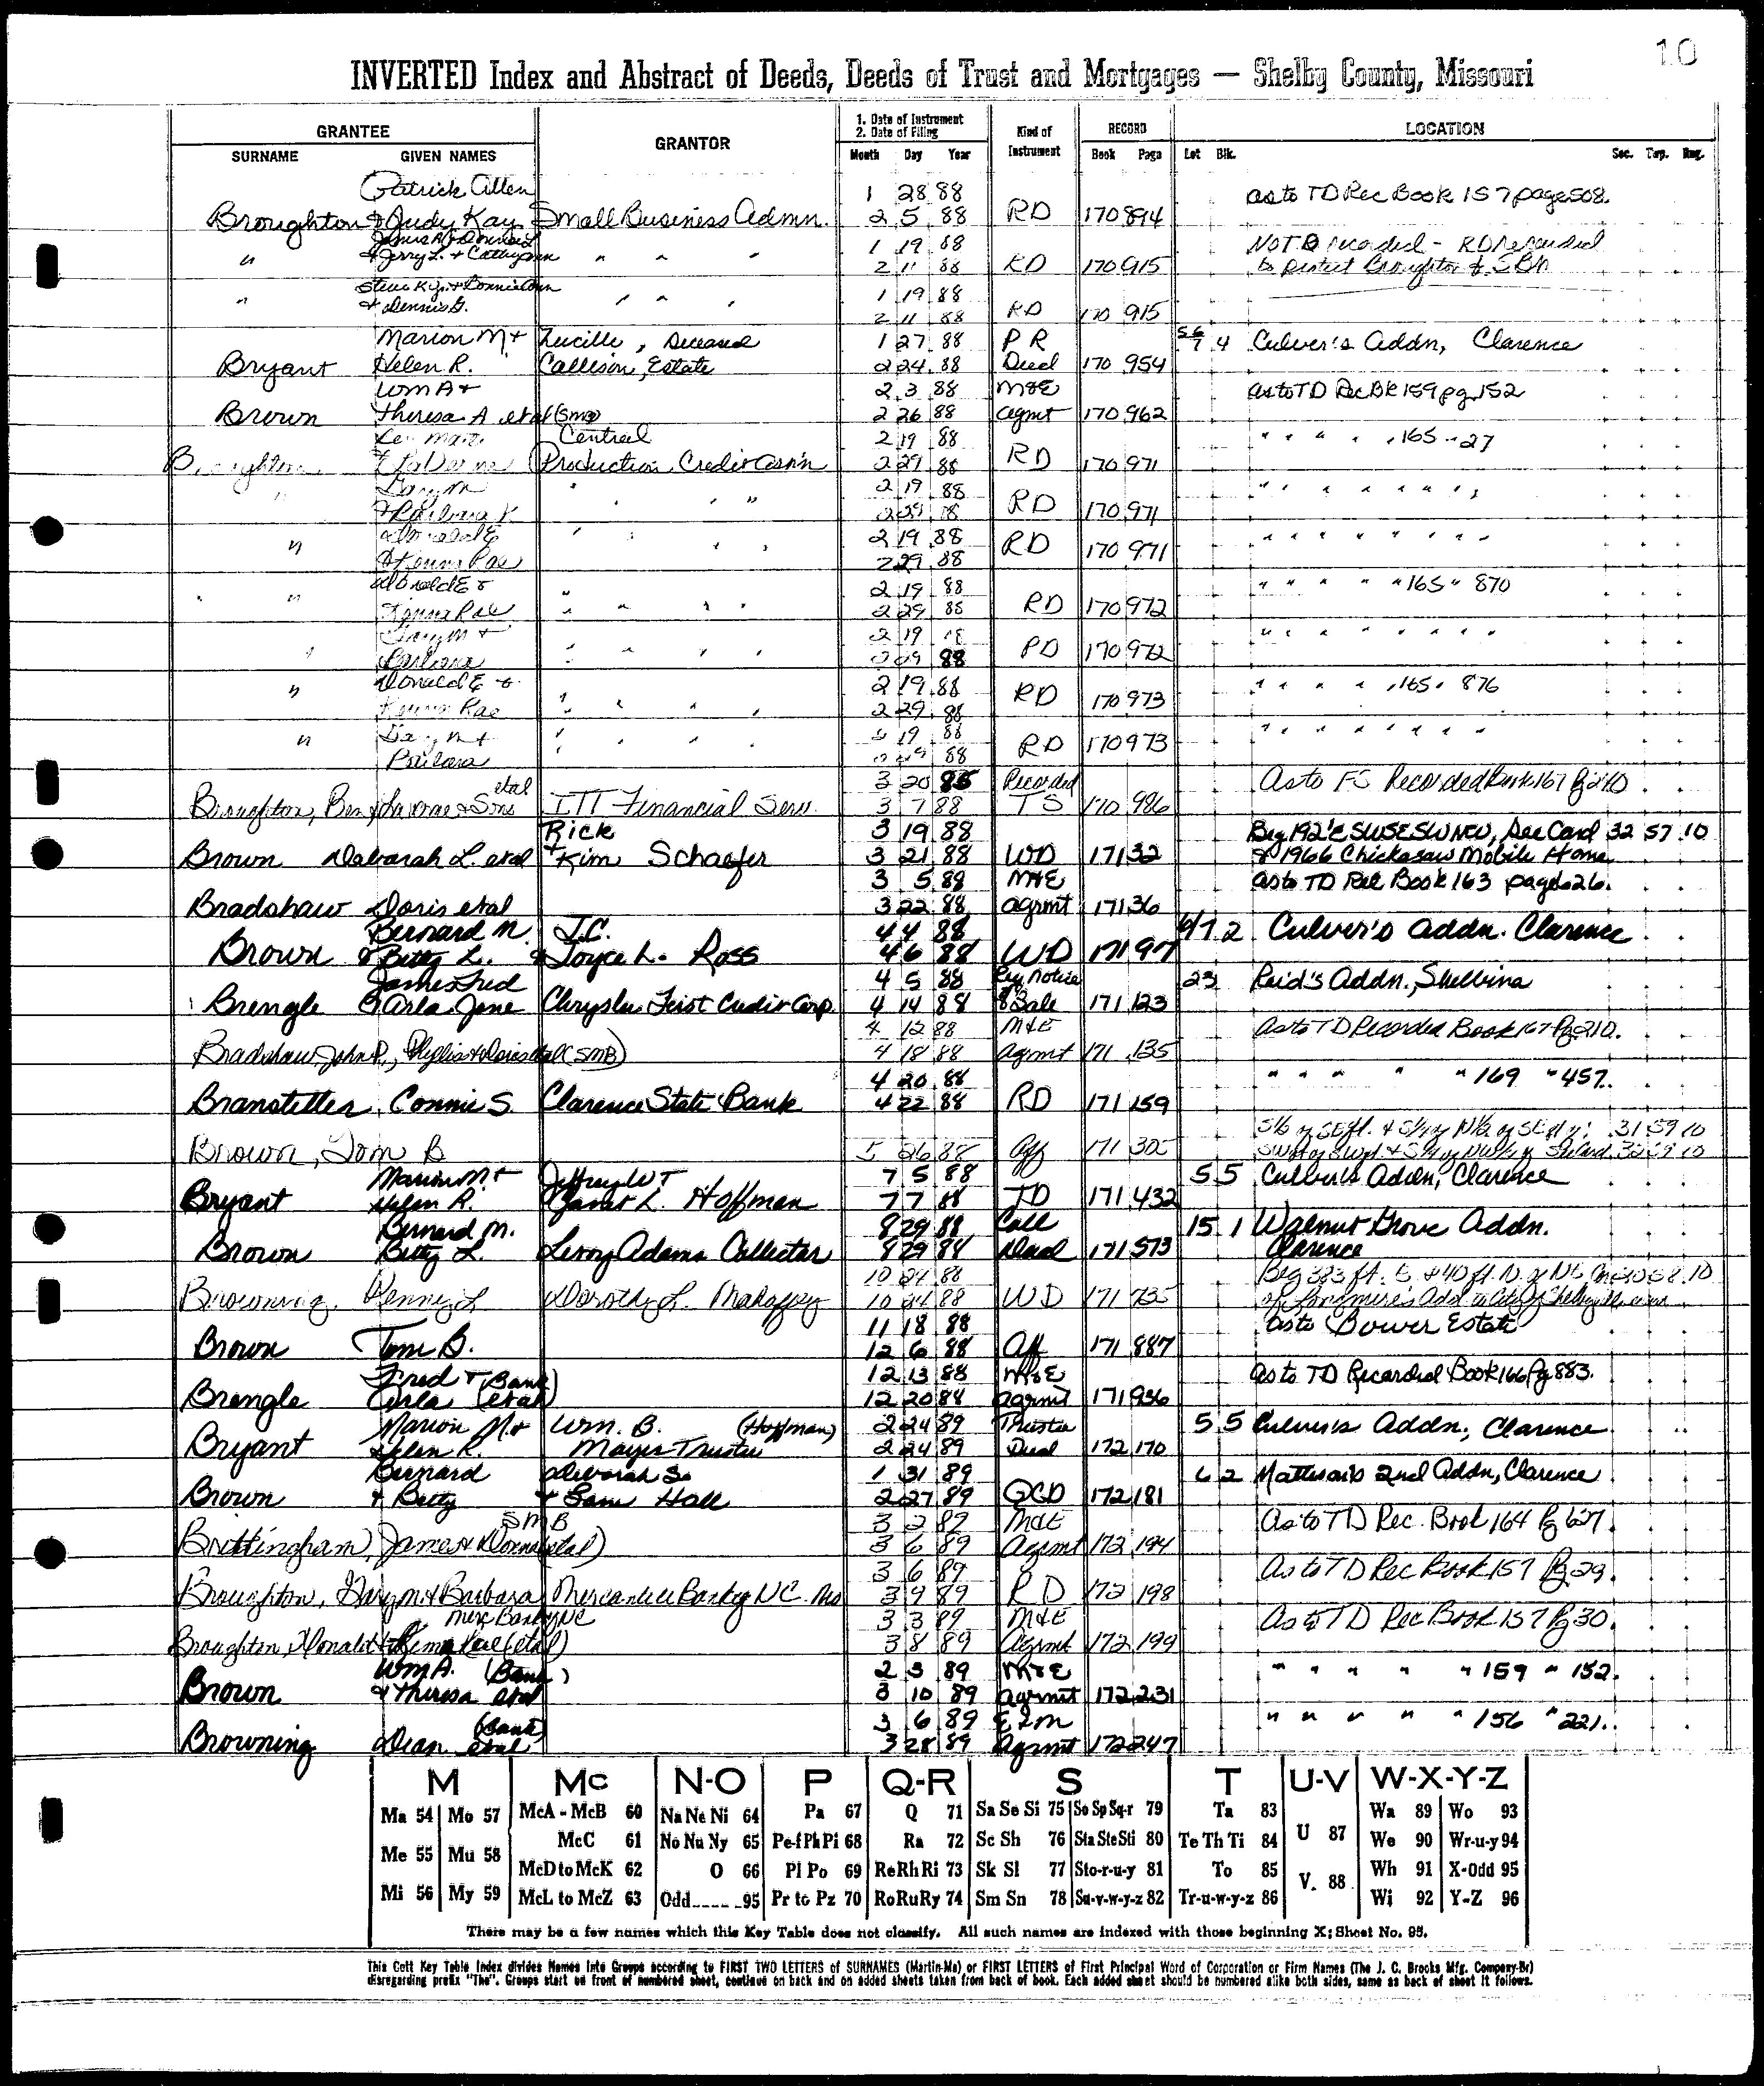 10
INVERTED Index and Abstract of Deeds, Deeds of Trust and Mortgages — Shelby County, Missouri
GRANTEE GRANTOR 1. Date of Instrument 2. Date of Filing Kind of Instrument RECORD LOCATION
SURNAME GIVEN NAMES Month Day Year Book Page Lot Blk. Sec. Twp. Rng.
Patrick Allen 1 28 88 as to TD Rec Book 157 page 508.
Broughton & Judy Kay Small Business Admn. 2 5 88 RD 170 894
1 19 88 NOT recorded - RD recorded
" & Jerry L. + " " " 2 11 88 RD 170 915 to protect Broughton & SBA
1 19 88
" & Dennis G. " " " 2 11 88 RD 170 915
Marion M + Lucille, Deceased 1 27 88 PR 56/7 4 Culver's Addn, Clarence
Bryant Helen R. Callison, Estate 2 24 88 Deed 170 954
Wm A + 2 3 88 M&E as to TD Rec Bk 159 pg 152
Brown Theresa A etal (SMB) 2 26 88 agmt 170 962
Central 2 19 88 " " " " 165 " 27
Broughton & LaVerne Production Credit Ass'n 2 29 88 RD 170 971
Gary M 2 19 88 " " " " " " "
" & Barbara K " " " 2 29 88 RD 170 971
Donald E 2 19 88 " " " " " " "
" & Kenna Rae " " " 2 29 88 RD 170 971
Donald E & 2 19 88 " " " " " 165 " 870
" Kenna Rae " " " " 2 29 88 RD 170 972
Gary M + 2 19 88 " " " " " " "
" Barbara " " " " 2 29 88 RD 170 972
Donald E & 2 19 88 " " " " 165 " 876
" Kenna Rae " " " " 2 29 88 RD 170 973
Gary M + 2 19 88 " " " " " " "
" Barbara " " " " 2 29 88 RD 170 973
etal 3 20 85 Recorded As to FS Recorded Book 167 Pg 210
Broughton, Ben & Laverne & Sons ITT Financial Serv. 3 7 88 TS 170 986
Rick 3 19 88 Beg 192' E SWSESWNEU, See Card 32 57 10
Brown Deborah L. etal + Kim Schaefer 3 21 88 WD 171 32 & 1966 Chickasaw Mobile Home
3 5 88 M&E as to TD Rec Book 163 page 626.
Bradshaw Doris etal 3 22 88 agrmt 171 36
Bernard M. J.C. 4 4 88 6/7 2 Culver's Addn. Clarence
Brown & Betty L. & Joyce L. Ross 4 6 88 WD 171 97
James Fred 4 5 88 Notice 23 Reid's Addn., Shelbina
Brengle Carla Jane Chrysler First Credit Corp. 4 14 88 Sale 171 123
4 12 88 M&E As to TD Recorded Book 167 Pg. 210.
Bradshaw, John P., Phyllis & Doris etal (SMB) 4 18 88 Agmt 171 135
4 20 88 " " " " " 169 " 457.
Branstetter, Connie S. Clarence State Bank 4 22 88 RD 171 159
31 59 10
Brown, Tom B 5 26 88 Aff 171 305
Marion M. + Jeffrey W + 7 5 88 5 5 Culver's Addn, Clarence
Bryant Helen R. Janet L. Hoffman 7 7 88 TD 171 432
Bernard M. 8 29 88 Coll 15 1 Walnut Grove Addn.
Brown Betty L. Leroy Adams Collector 8 29 88 Deed 171 573 Clarence
10 24 88 Beg 383 ft. E. & 40 ft. N. of
Browning, Kenny L Dorothy L. Mahaffey 10 24 88 WD 171 735
11 18 88 as to Bower Estate
Brown Tom B. 12 6 88 Aff 171 887
Fred + (Bank) 12 13 88 M&E as to TD Recorded Book 166 Pg 883.
Brengle Carla (etal) 12 20 88 agrmt 171 936
Marion M. + Wm. B. (Hoffman) 2 24 89 Trustee 5 5 Culver's Addn, Clarence
Bryant Helen R. Mayes Trustee 2 24 89 Deed 172 170
Bernard Deborah S. 1 31 89 6 2 Matteson's 2nd Addn, Clarence
Brown + Betty + Sam Hall 2 27 89 QCD 172 181
SMB 3 2 89 M&E As to TD Rec. Book 164 Pg 627.
Brittingham, James & Donna (etal) 3 6 89 Agrmt 172 194
3 6 89 As to TD Rec Book 157 Pg 29.
Broughton, Gary M. & Barbara Mercantile Bank of NC Mo 3 9 89 RD 172 198
Merc Bank of NC 3 3 89 M&E As to TD Rec Book 157 Pg 30.
Broughton, Donald & Kenna Rae (etal) 3 8 89 Agrmt 172 199
Wm A. (Bank) 2 3 89 M&E " " " " " 159 " 152.
Brown & Theresa etal 3 10 89 agrmt 172 231
(Bank) 3 6 89 E&M " " " " " 156 " 221.
Browning Dean etal 3 28 89 Agrmt 172 247
M Mc N-O P Q-R S T U-V W-X-Y-Z
Ma 54 Mo 57 McA - McB 60 Na Ne Ni 64 Pa 67 Q 71 Sa Se Si 75 So Sp Sq-r 79 Ta 83 U 87 Wa 89 Wo 93
Me 55 Mu 58 McC 61 No Nu Ny 65 Pe-f Ph Pi 68 Ra 72 Sc Sh 76 Sta Ste Sti 80 Te Th Ti 84 We 90 Wr-u-y 94
McD to McK 62 O 66 Pl Po 69 Re Rh Ri 73 Sk Sl 77 Sto-r-u-y 81 To 85 V. 88 Wh 91 X-Odd 95
Mi 56 My 59 McL to McZ 63 Odd 95 Pr to Pz 70 Ro Ru Ry 74 Sm Sn 78 Su-v-w-y-z 82 Tr-u-w-y-z 86 Wi 92 Y-Z 96
There may be a few names which this Key Table does not classify. All such names are indexed with those beginning X; Sheet No. 95.
This Cott Key Table Index divides Names into Groups according to FIRST TWO LETTERS of SURNAMES (Martin-Ma) or FIRST LETTERS of First Principal Word of Corporation or Firm Names (The J. C. Brooks Mfg. Company-Br)
disregarding prefix "The". Groups start on front of numbered sheet, continue on back and on added sheets taken from back of book. Each added sheet should be numbered alike both sides, same as back of sheet it follows.